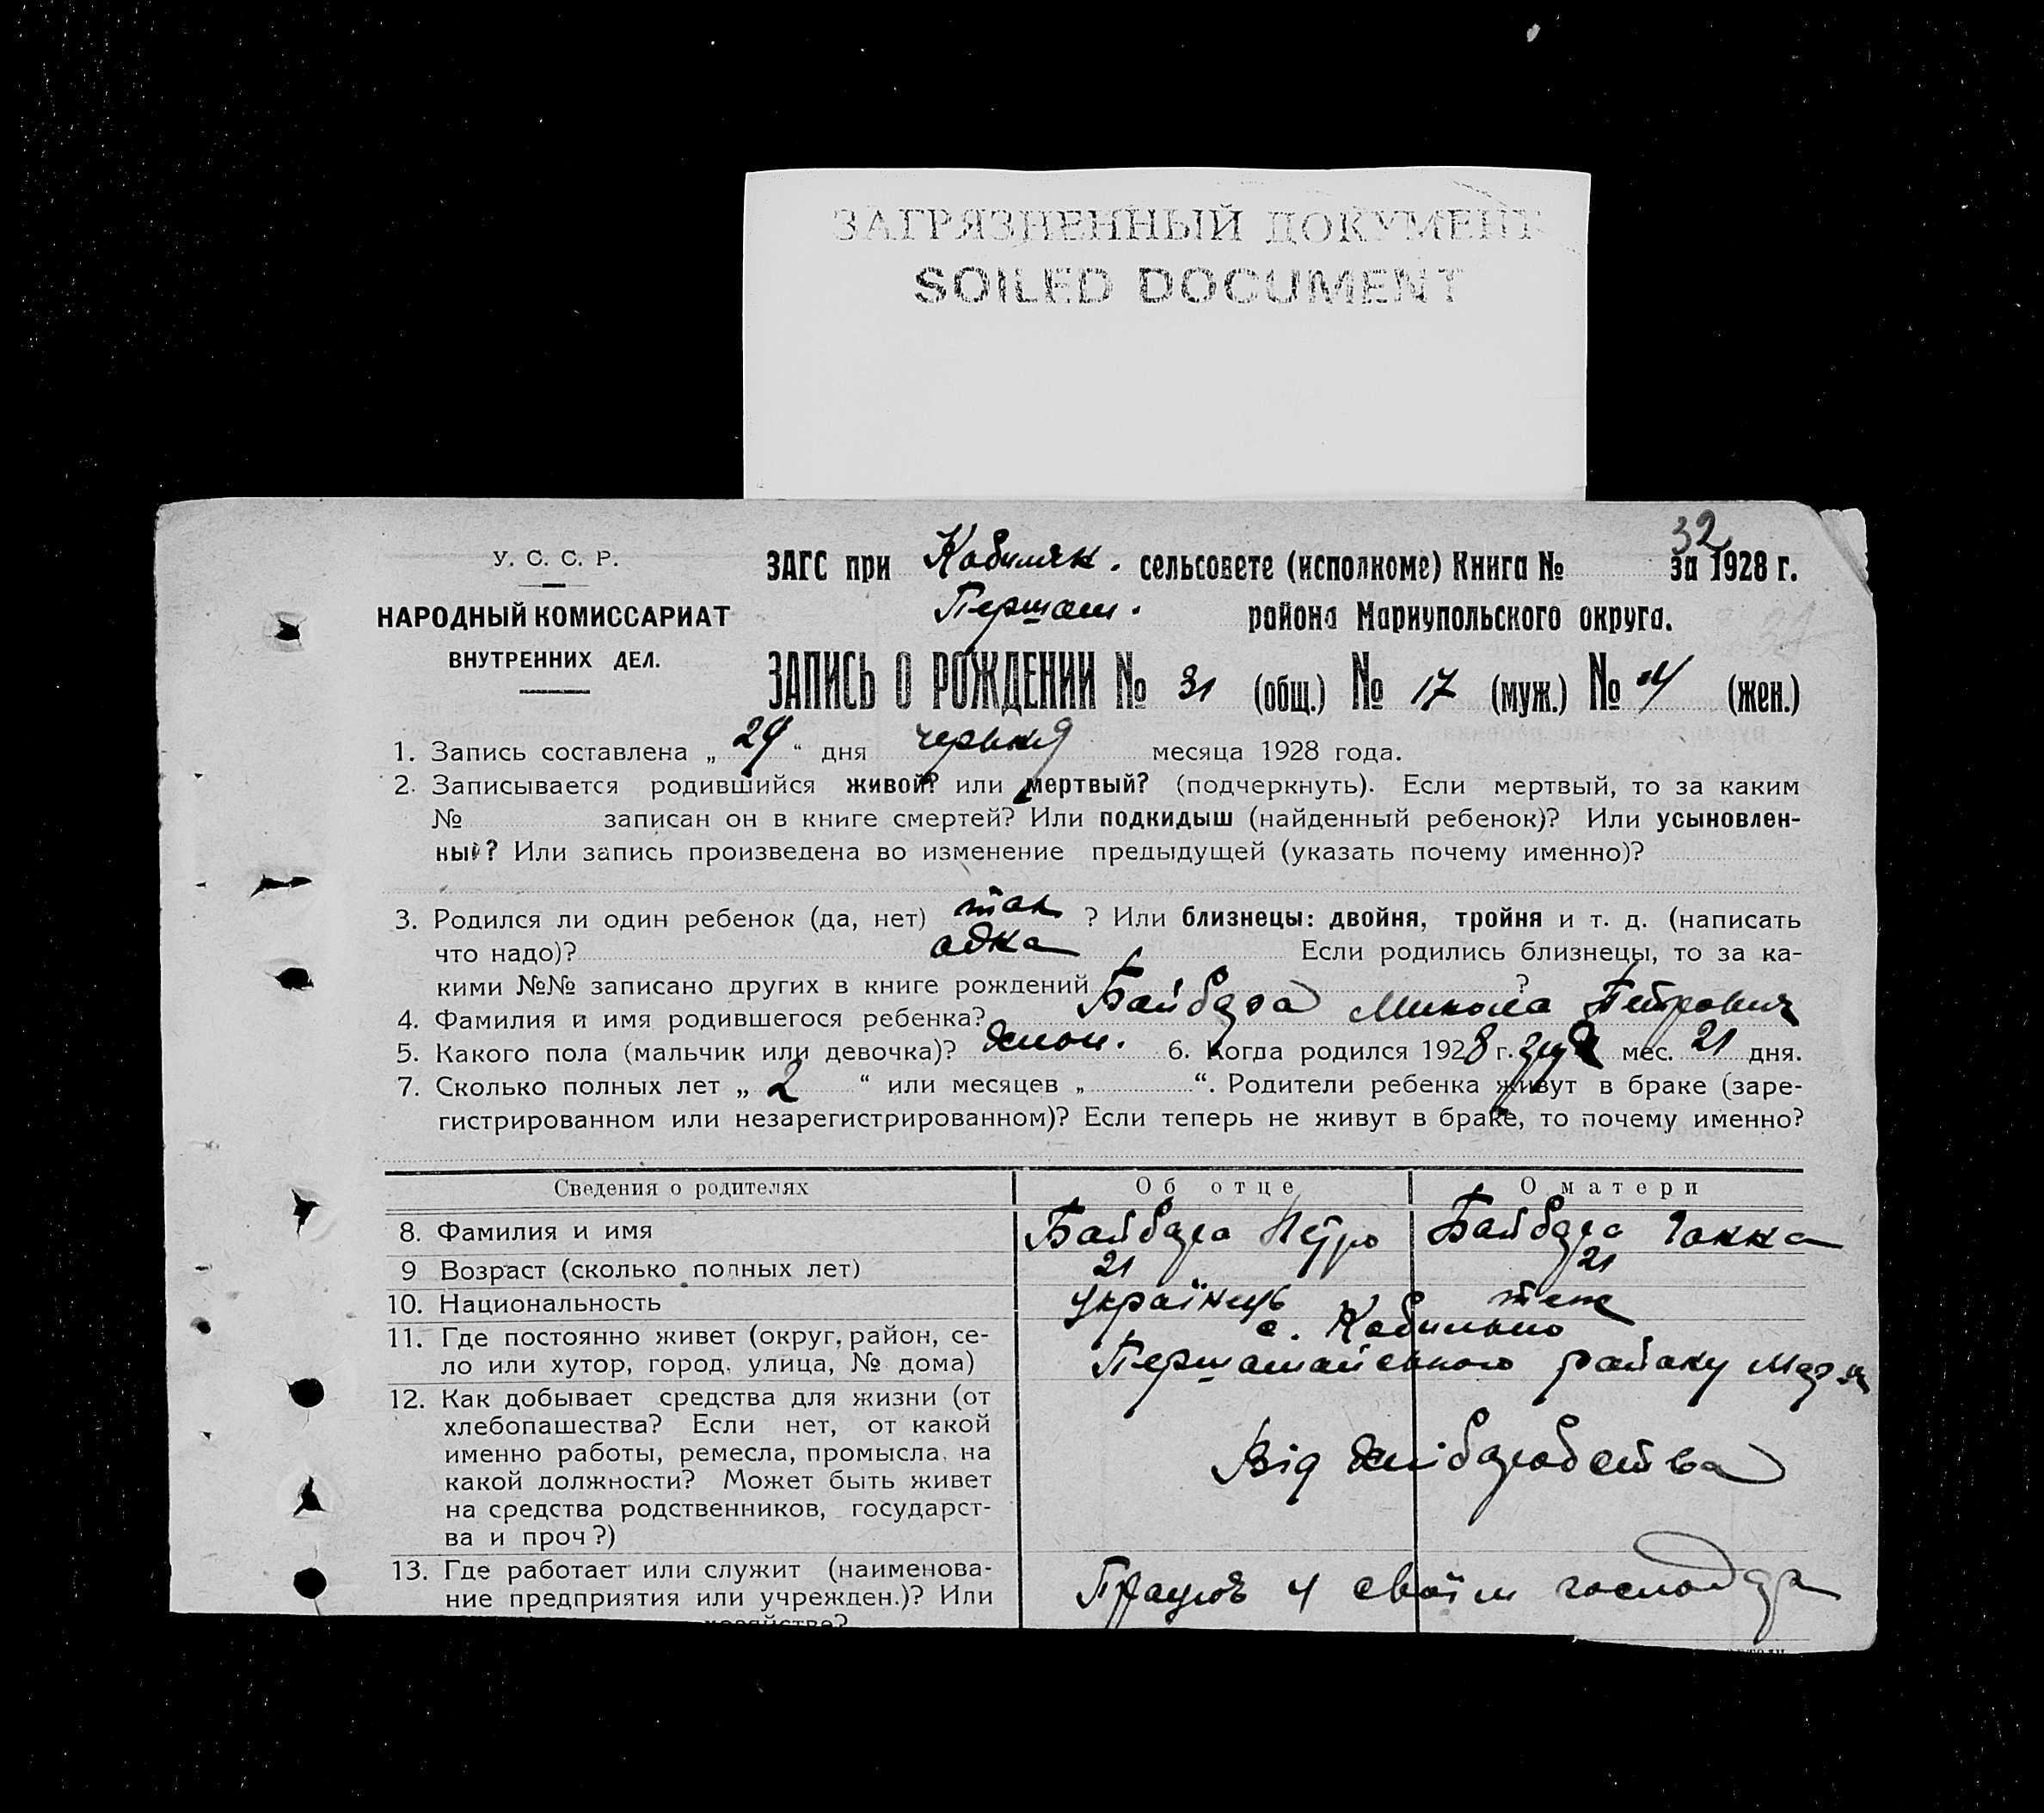 ЗАГРЯЗНЕННЫЙ ДОКУМЕНТ
SOILED DOCUMENT
32
У. С. С. Р.
НАРОДНЫЙ КОМИССАРИАТ
ВНУТРЕННИХ ДЕЛ.
ЗАГС при Кобиляк. сельсовете (исполкоме) Книга № за 1928 г.
Першот. района Мариупольского округа.
ЗАПИСЬ О РОЖДЕНИИ № 31 (общ.) № 17 (муж.) № 14 (жен.)
1. Запись составлена „ 29 “ дня червня месяца 1928 года.
2. Записывается родившийся живой? или мертвый? (подчеркнуть). Если мертвый, то за каким
№ записан он в книге смертей? Или подкидыш (найденный ребенок)? Или усыновлен-
ный? Или запись произведена во изменение предыдущей (указать почему именно)?
3. Родился ли один ребенок (да, нет) так ? Или близнецы: двойня, тройня и т. д. (написать
что надо)? одна Если родились близнецы, то за ка-
кими №№ записано других в книге рождений ?
4. Фамилия и имя родившегося ребенка? Байбара Микола Петрович
5. Какого пола (мальчик или девочка)? хлоп. 6. Когда родился 1928 г. мес. 21 дня.
7. Сколько полных лет „ 2 “ или месяцев „ “. Родители ребенка живут в браке (заре-
гистрированном или незарегистрированном)? Если теперь не живут в браке, то почему именно?
Сведения о родителях Об отце О матери
8. Фамилия и имя Байбара Петро Байбара Ганна
9 Возраст (сколько полных лет) 21 21
10. Национальность українець теж
11. Где постоянно живет (округ, район, се- с. Кобильно
ло или хутор, город, улица, № дома) Першотравенського району
12. Как добывает средства для жизни (от
хлебопашества? Если нет, от какой
именно работы, ремесла, промысла, на Від хліборобства
какой должности? Может быть живет
на средства родственников, государст-
ва и проч?)
13. Где работает или служит (наименова-
ние предприятия или учрежден.)? Или Працює у своїм господар
хозяйстве?